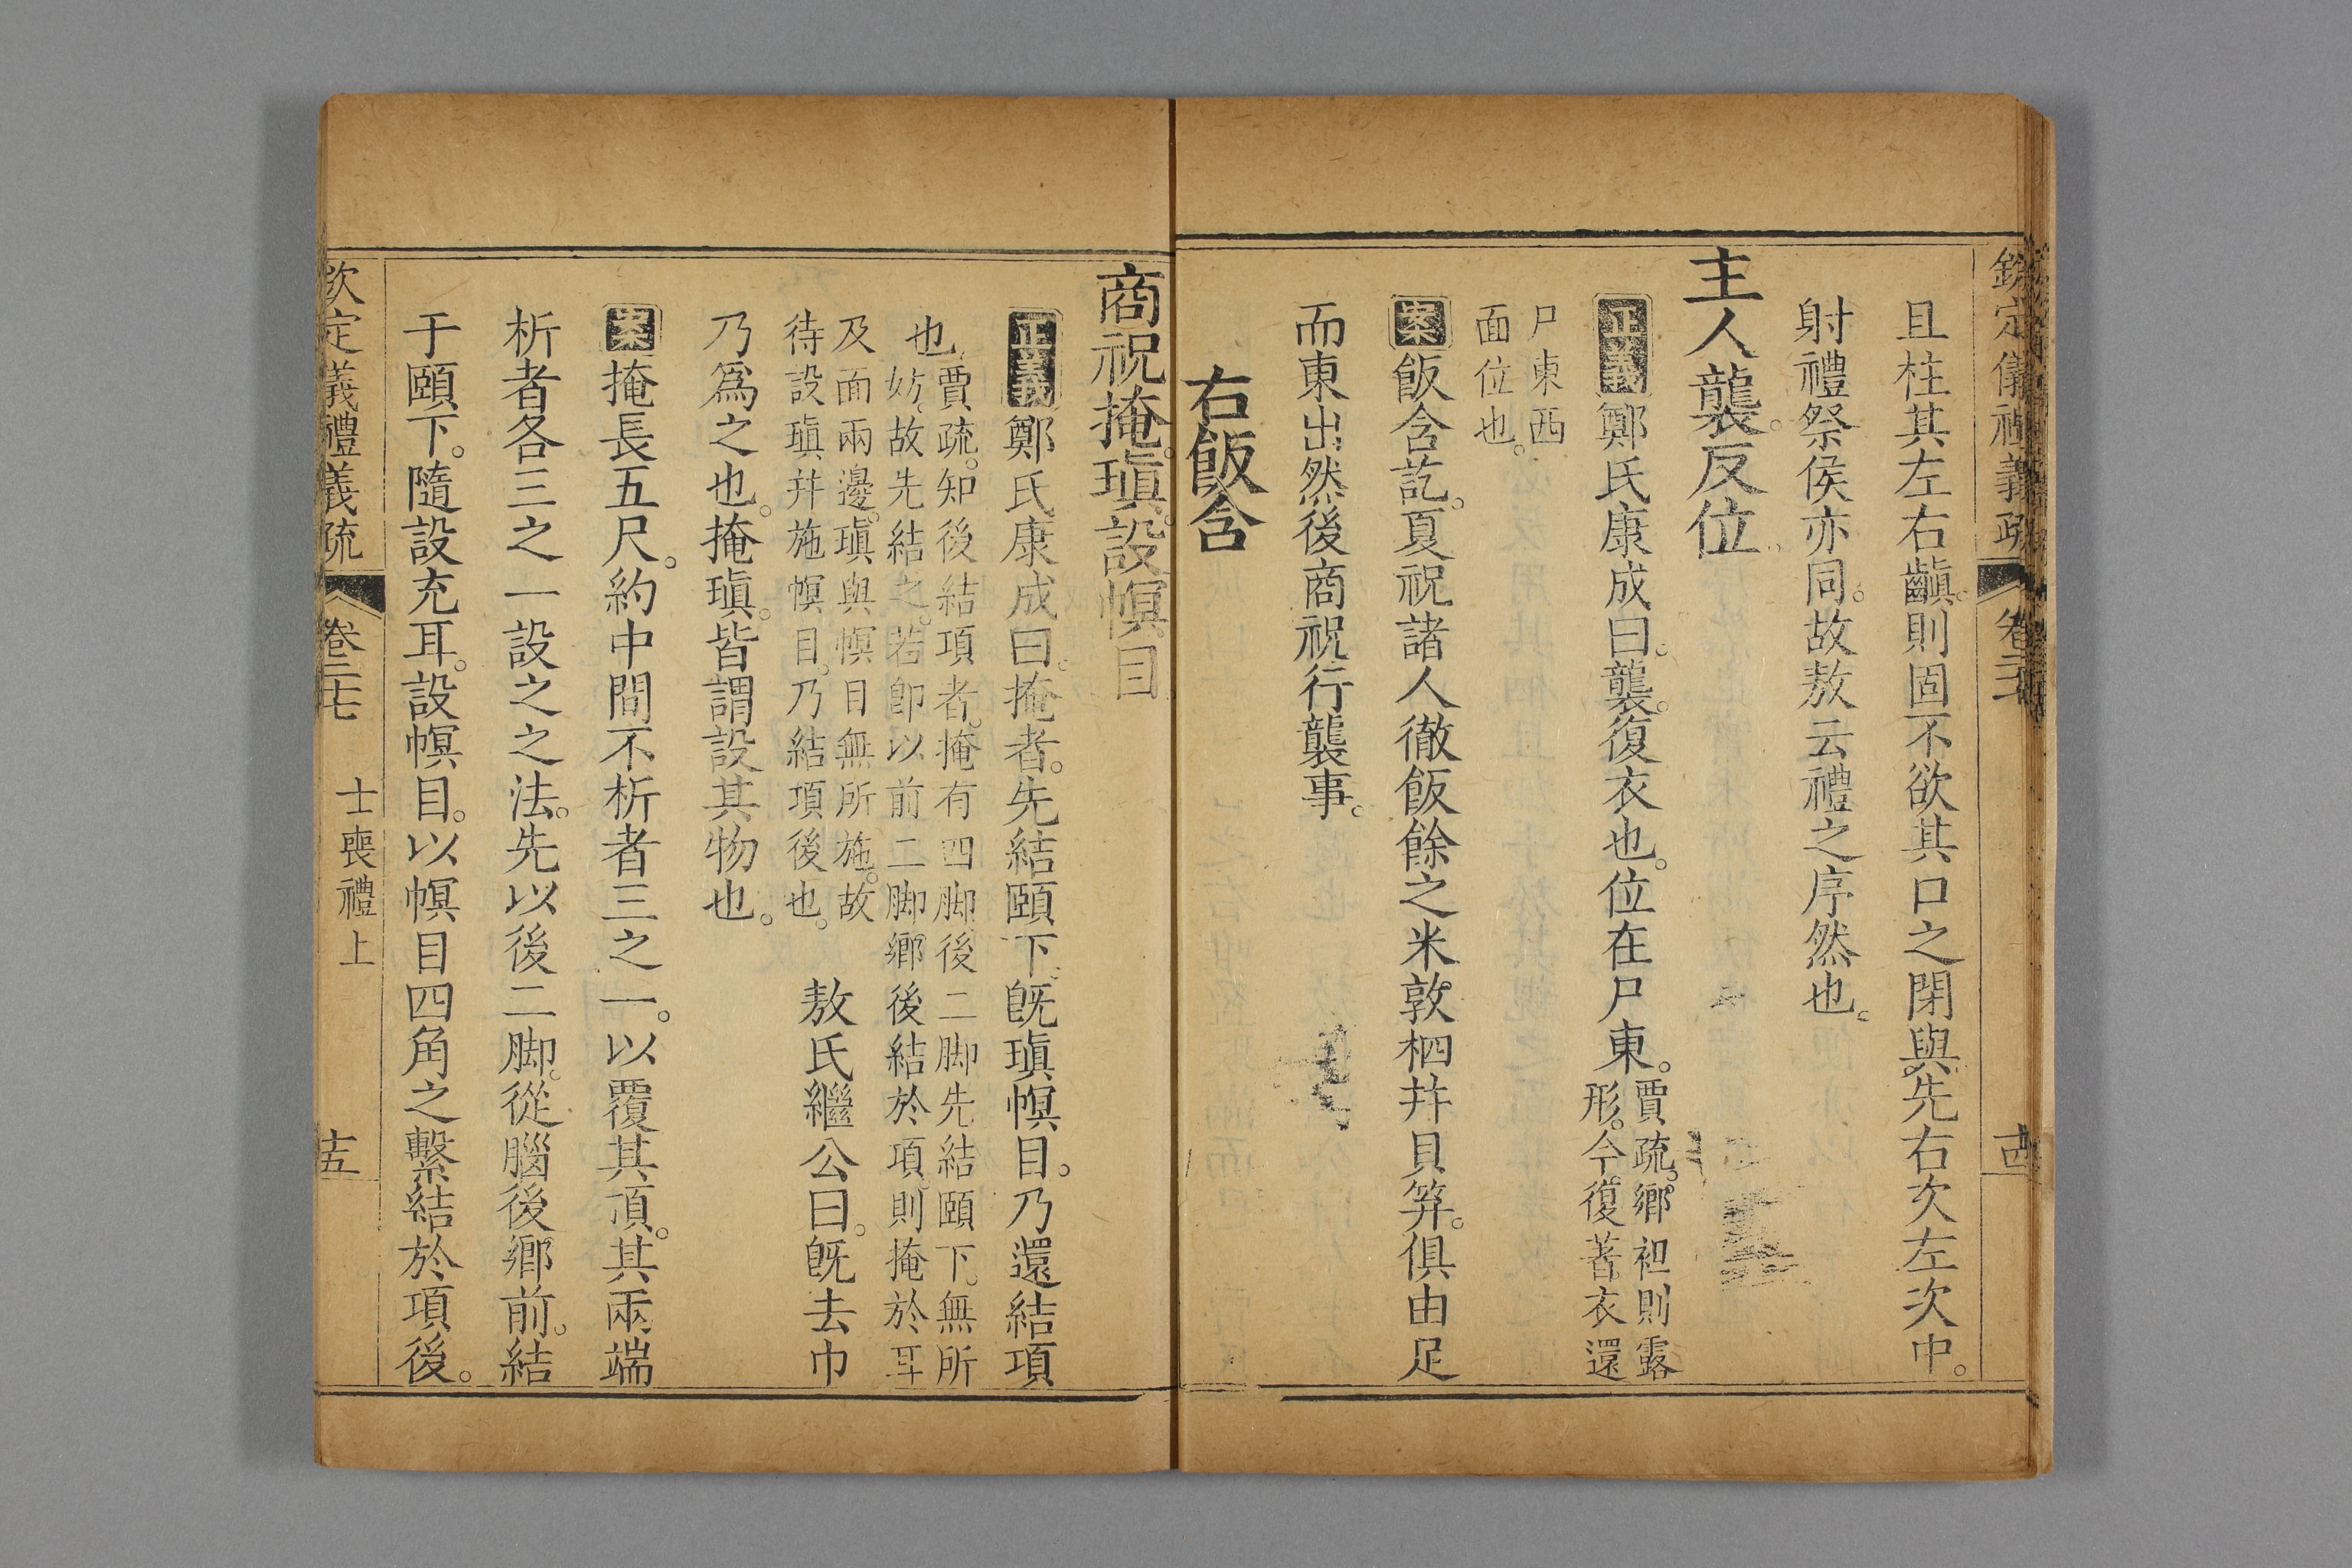 欽定儀禮義疏 卷二十七 十四
且柱其左右齻。則固不欲其口之閉與。先右次左次中。
射禮祭侯亦同。故敖云禮之序然也。
主人襲。反位。
正義 鄭氏康成曰。襲。復衣也。位在尸東。
賈疏。鄉袒則露
形。今復著衣還
尸東西
面位也。
案 飯含訖。夏祝諸人徹飯餘之米敦柶并貝笲。俱由足
而東出。然後商祝行襲事。
右飯含
商祝掩。瑱。設幎目
正義 鄭氏康成曰。掩者。先結頤下。既瑱幎目。乃還結項
也。
賈疏。知後結項者。掩有四脚。後二脚先結頤下。無所
妨。故先結之。若即以前二脚。鄉後結於項。則掩於耳
及面兩邊。瑱與幎目無所施。故
待設瑱并施幎目。乃結項後也。
敖氏繼公曰。既去巾
乃爲之也。掩瑱。皆謂設其物也。
案 掩長五尺。約中間不析者三之一。以覆其頂。其兩端
析者各三之一。設之之法。先以後二脚。從腦後鄉前。結
于頤下。隨設充耳。設幎目。以幎目四角之繫結於項後。
欽定義禮義疏 卷二十七 士喪禮上 十五